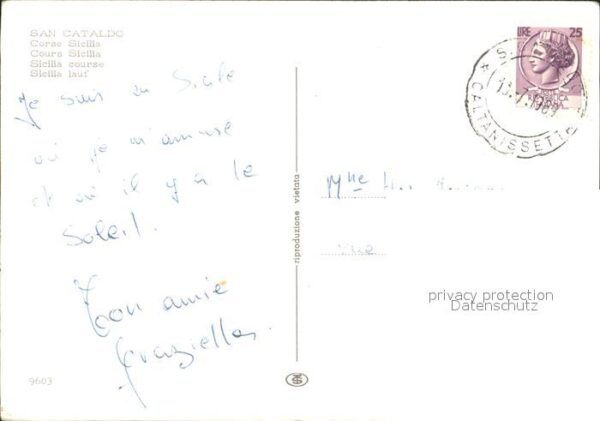 SAN CATALDO
Corse Sicilia
Cours Sicilia
Sicilia course
Sicilia lauf
Je suis en Sicile
où je m'amuse
et où il y a le
soleil.
Ton amie
Graziella.
9603
riproduzione vietata
LIRE 25
CALTANISSETTA
Mlle
privacy protection
Datenschutz